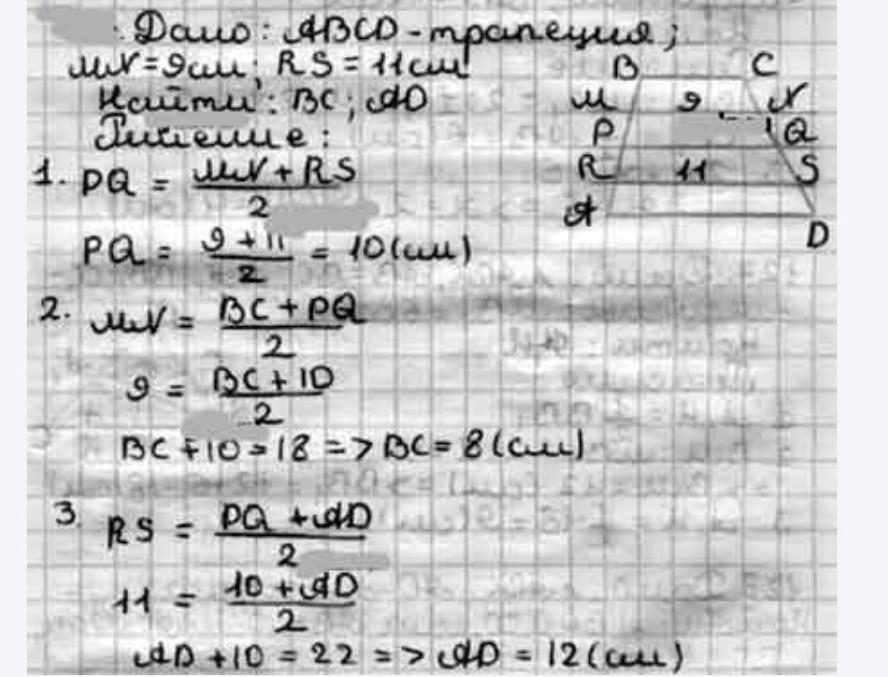 Дано: ABCD - трапеция;
MN = 9 см; RS = 11 см
Найти: BC; AD
Решение:
B C
M 9 N
P Q
R 11 S
A
D
1. PQ = (MN + RS)/2
PQ = (9 + 11)/2 = 10 (см)
2. MN = (BC + PQ)/2
9 = (BC + 10)/2
BC + 10 = 18 => BC = 8 (см)
3. RS = (PQ + AD)/2
11 = (10 + AD)/2
AD + 10 = 22 => AD = 12 (см)